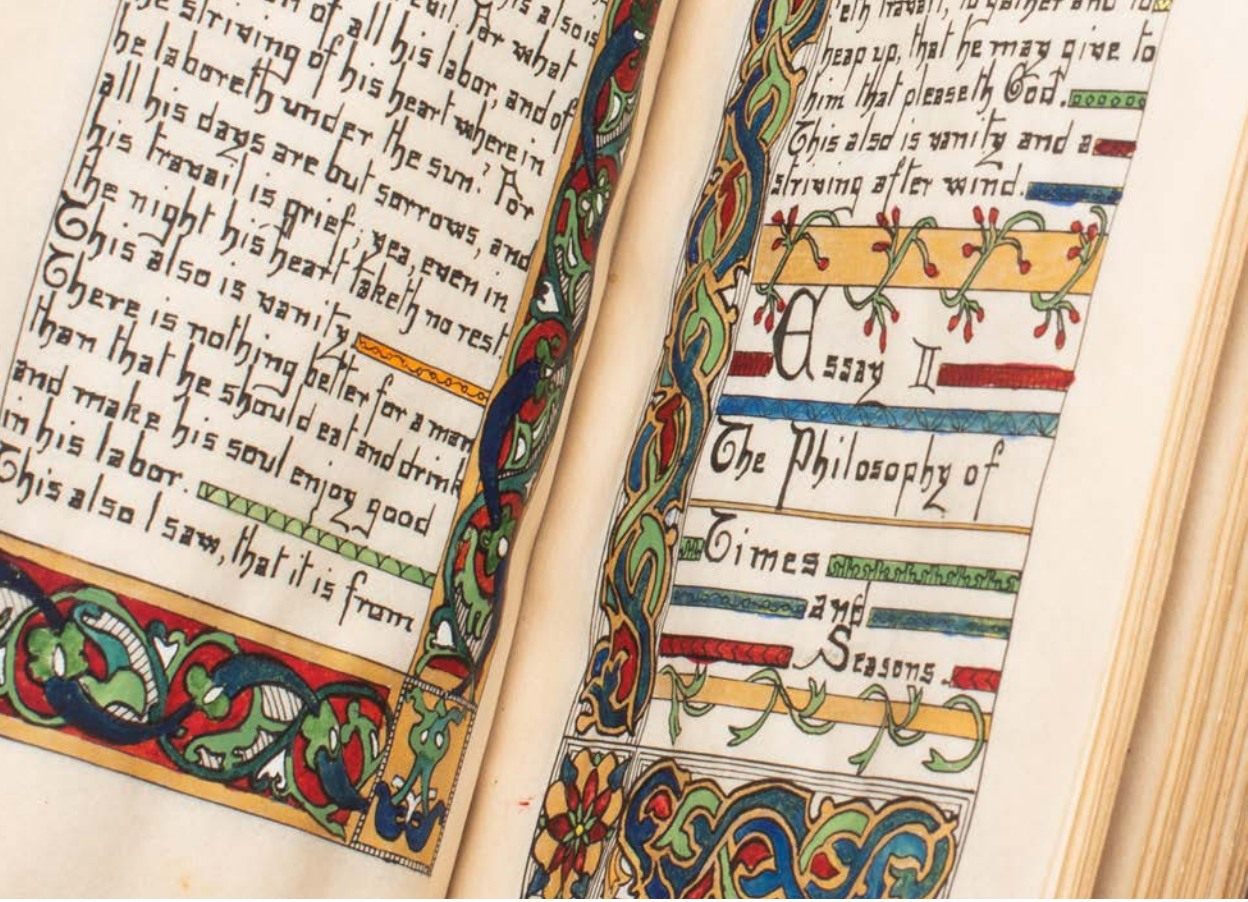 his also is
evil. For what
of all his labor, and of
he striving of his heart wherein
he laboreth under the sun? For
all his days are but sorrows, and
his travail is grief; yea, even in
the night his heart taketh no rest.
This also is vanity.
There is nothing better for a man
than that he should eat and drink
and make his soul enjoy good
in his labor.
This also I saw, that it is from
travail, to gather and to
heap up, that he may give to
him that pleaseth God.
This also is vanity and a
striving after wind.
Essay II
The Philosophy of
Times
and
Seasons.